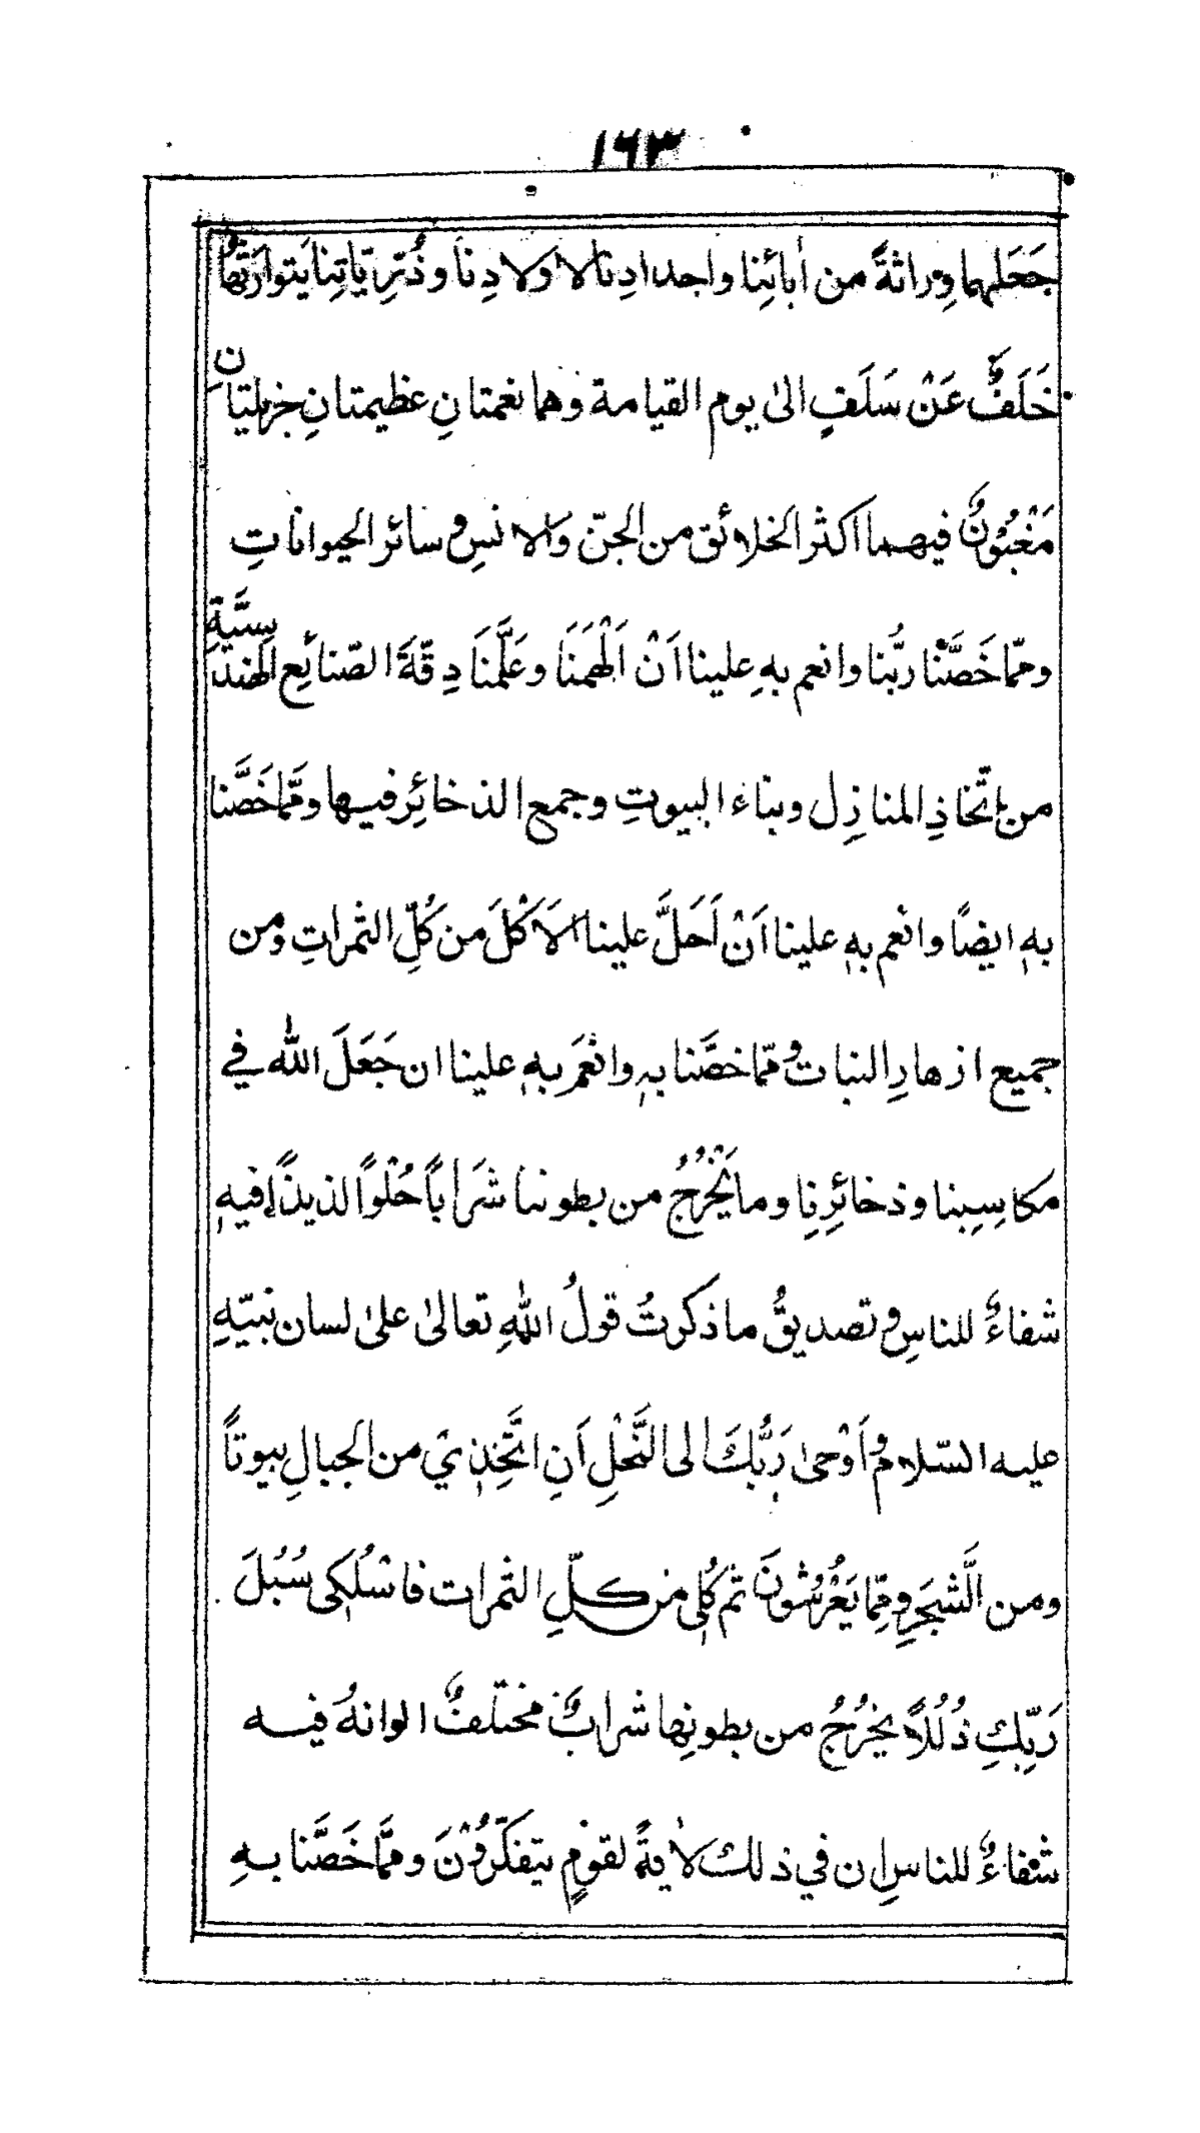 ١٦٣
جَعَلهما وِراثةً من اٰبائِنا واجدادِنا لاولادِنا وذُرِّيّاتِنا يَتوارَثُها
خَلَفٌ عَنْ سَلَفٍ الىٰ يوم القيامة وهما نعمتانِ عظيمتانِ جزيلتان
مَغْبُوْنٌ فيهما اكثر الخلائق من الجنّ والانسِ وسائر الحيواناتِ
وممّا خَصَّنا ربُّنا وانعم بهِ علينا اَنْ اَلْهَمَنَا وعَلَّمنَا دِقّةَ الصّنائِع الهندسيَّةِ
من اِتّخاذِ المنازِل وبناء البيوتِ وجمع الذخائِر فيها وممَّا خَصَّنا
بهٖ ايضًا وانعم بهٖ علينا اَنْ اَحَلَّ علينا الاَكْلَ من كُلِّ الثمراتِ ومن
جميع ازهارِ النبات وممّا خصَّنا بهٖ وانْعَمَ بهٖ علينا ان جَعَلَ الله في
مكاسِبِنا وذخائِرِنا وما يَخْرُجُ من بطوننا شَرَاباً حُلْواً لذيذًا فيهٖ
شفاءٌ للناسِ وتصديقُ ما ذكرتُ قولُ اللهِ تعالىٰ علىٰ لسان نبيّهِ
عليه السّلام وَاَوْحىٰ رَبُّكَ الى النَّحْلِ اَنِ اتَّخِذِيْ من الجبالِ بيوتاً
ومن الشَّجَرِ ومِمّا يَعْرُشُونَ ثم كُلِى من كلِّ الثمرات فاسْلُكِى سُبُلَ
رَبِّكِ ذُلُلاً يخرُجُ من بطونِها شرابٌ مختلفٌ الوانهُ فيه
شفاءٌ للناسِ ان في ذلك لاٰيةً لقومٍ يتفكّرُوْنَ وممَّا خَصَّنا بهِ